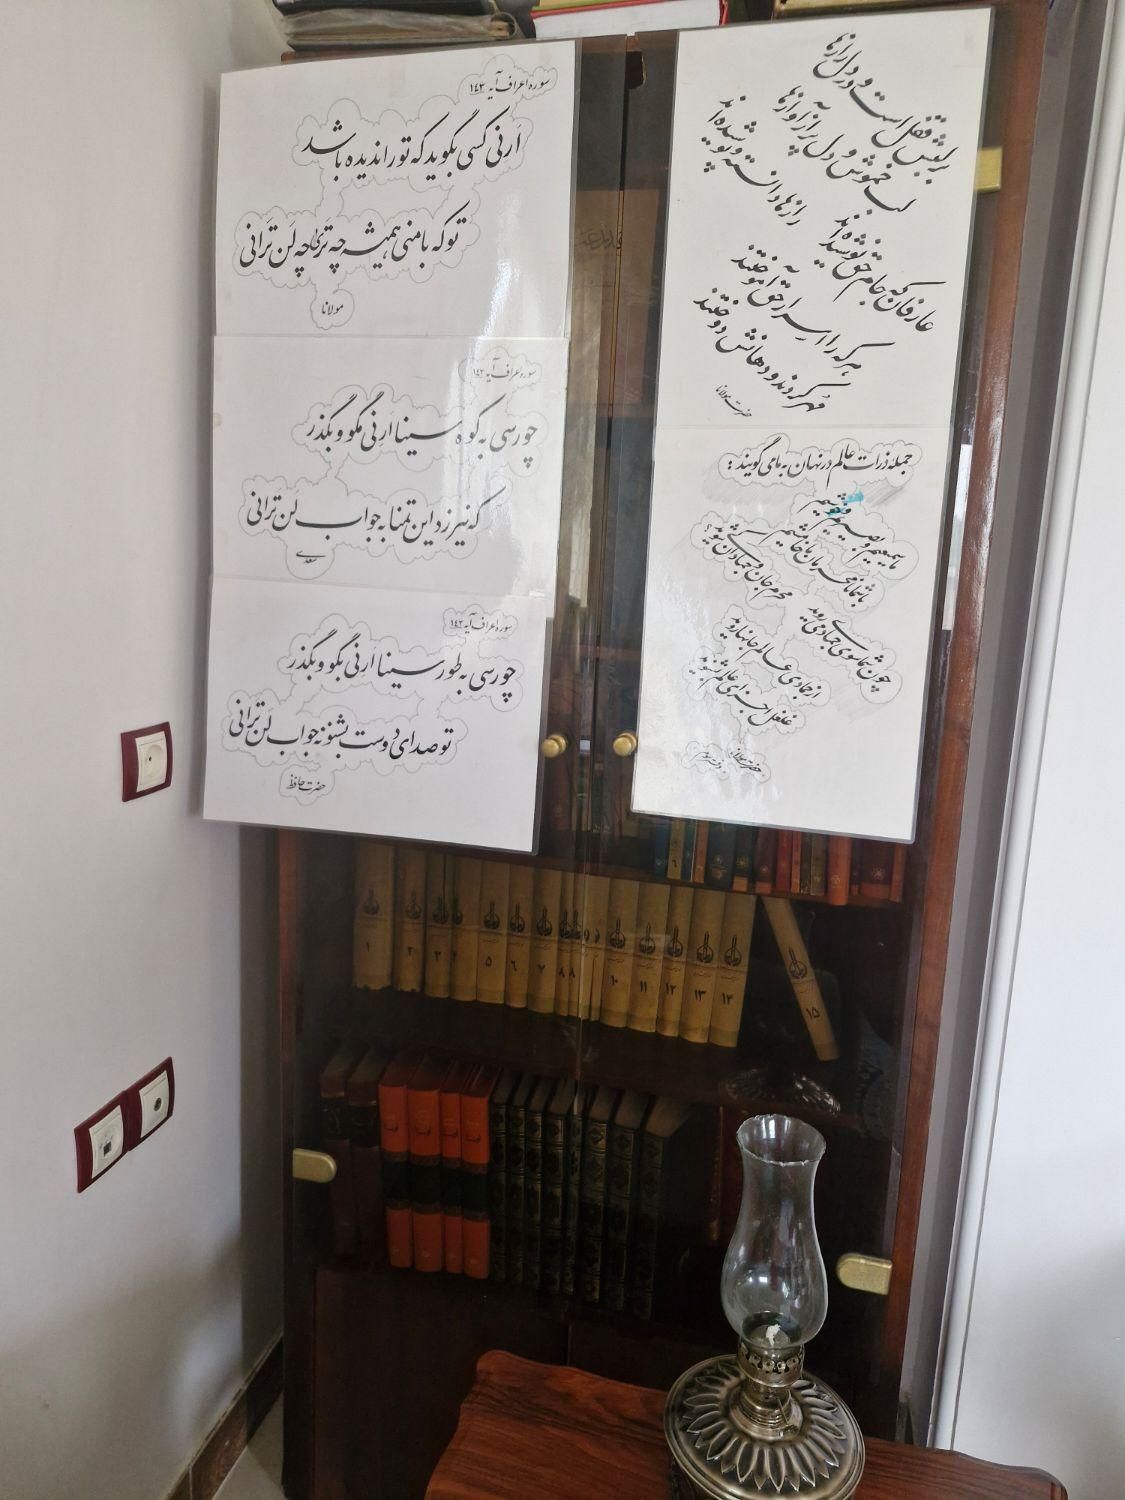 سوره اعراف آیه ۱۴۳
اَرِنی کسی بگوید که تو را ندیده باشد
تو که با منی همیشه چه تَری چه لَن تَرانی
مولانا
سوره اعراف آیه ۱۴۳
چو رسی به کوه سینا اَرِنی مگو و بگذر
که نیرزد این تمنا به جواب لَن تَرانی
سعدی
سوره اعراف آیه ۱۴۳
چو رسی به طور سینا اَرِنی بگو و بگذر
تو صدای دوست بشنو نه جواب لَن تَرانی
حضرت حافظ
بر لبش قفل است و در دل رازها
لب خموش و دل پر از آوازها
عارفان که جام حق نوشیده‌اند
رازها دانسته و پوشیده‌اند
هر که را اسرار حق آموختند
مهر کردند و دهانش دوختند
حضرت مولانا
جمله ذرات عالم در نهان به ما می گویند :
ما سمیعیم و بصیریم و خوشیم
با شما نامحرمان ما خامشیم
چون شما سوی جمادی می روید
محرم جان جمادان کی شوید؟
از جمادی عالم جانها روید
غلغل اجزای عالم بشنوید
حضرت مولانا
دفتر سوم
۱
۲
۳
۴
۵
۶
۷
۸
۸
۱۰
۱۱
۱۲
۱۳
۱۴
۱۵